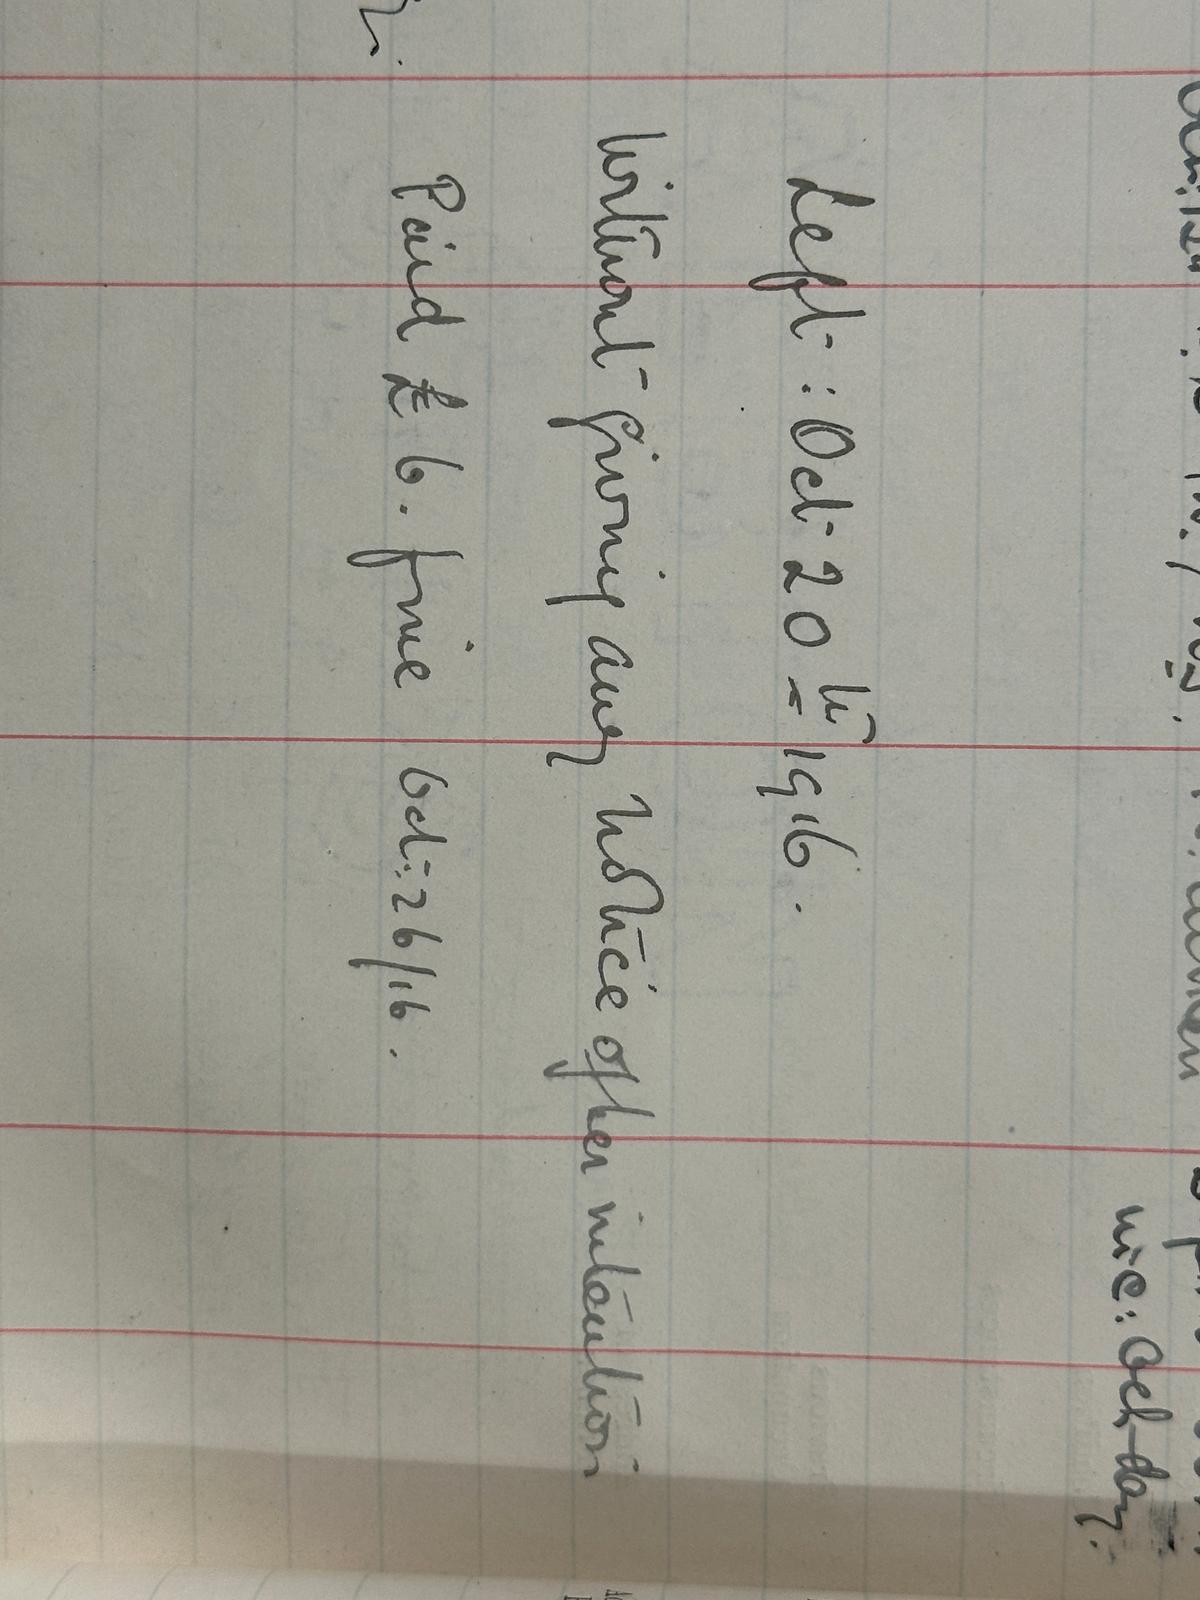 inc: Oct-day.
Left: Oct 20th 1916.
Without giving any notice of her intention
Paid £6. fine Oct: 26/16.